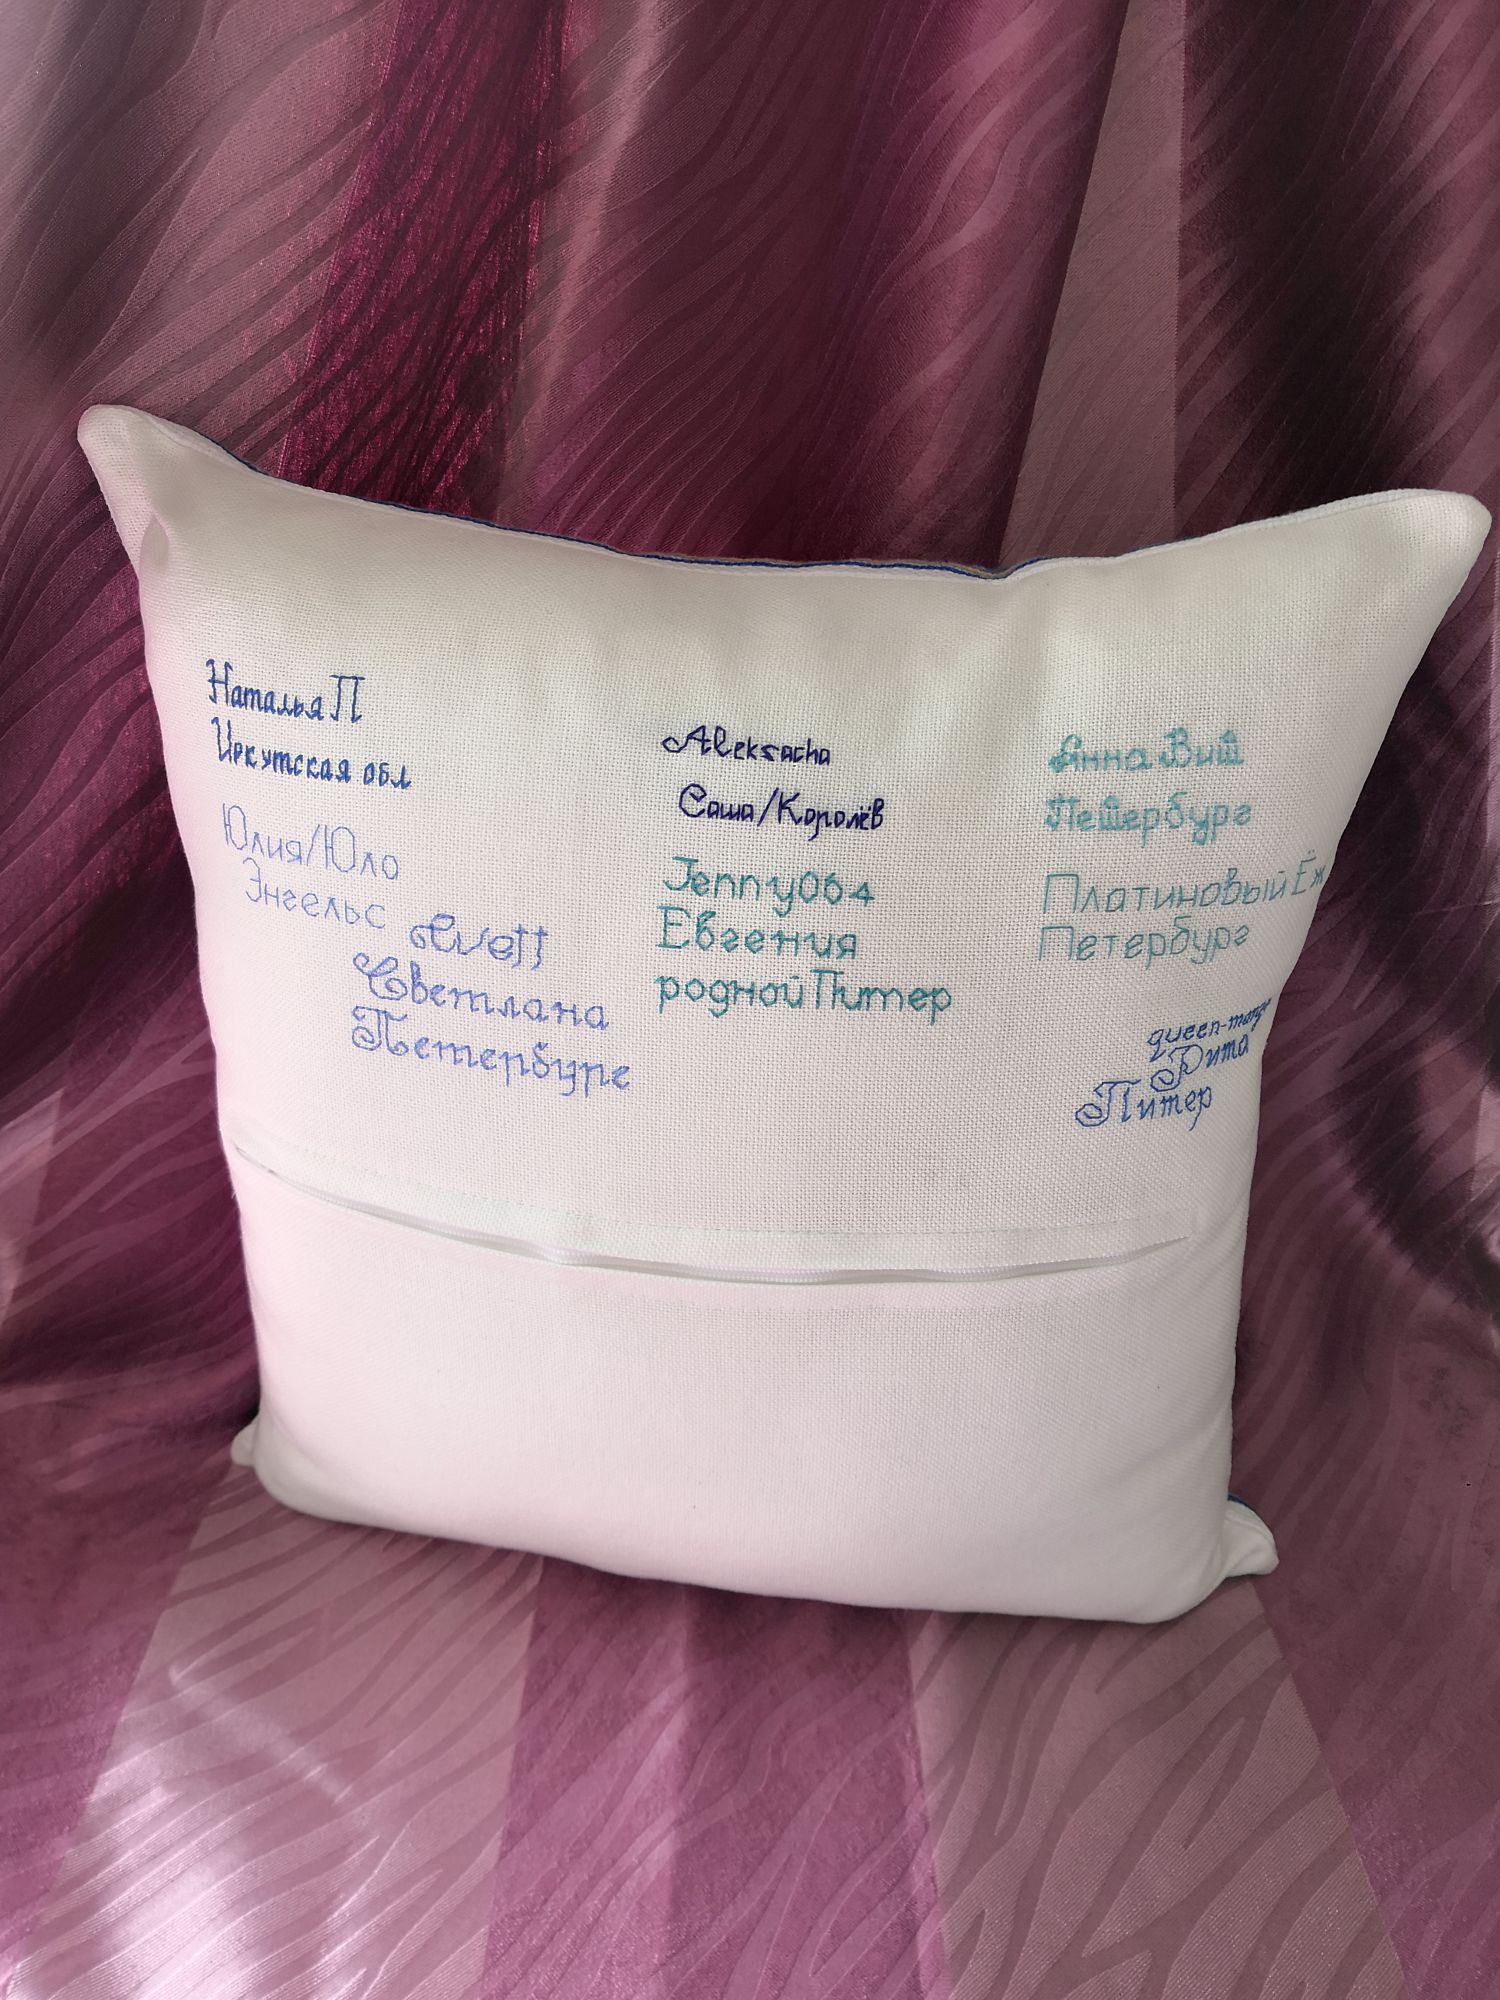 Наталья П
Иркутская обл
Юлия/Юло
Энгельс
Светлана
Петербург
Aleksacha
Саша/Королёв
Jenny064
Евгения
родной Питер
Анна Вит
Петербург
Платиновый Ёж
Петербург
Рита
Питер